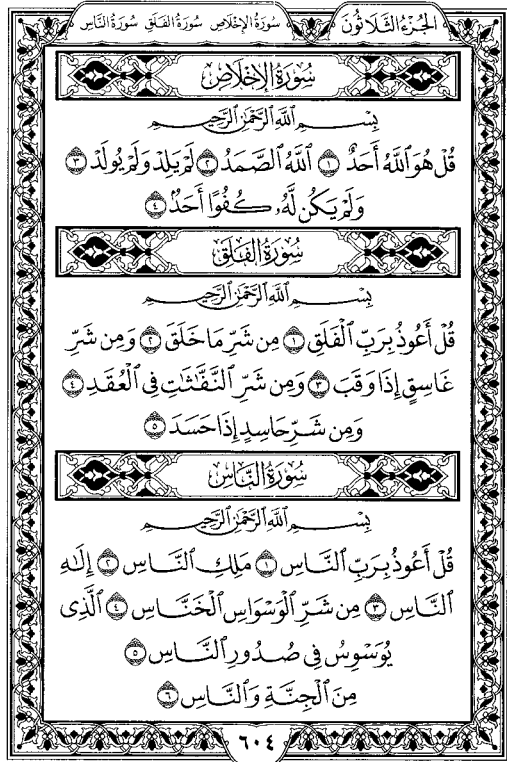 الجزء الثلاثون سورة الإخلاص سورة الفلق سورة الناس
سُورَةُ الإِخْلَاصِ
بِسْمِ ٱللَّهِ ٱلرَّحْمَٰنِ ٱلرَّحِيمِ
قُلْ هُوَ ٱللَّهُ أَحَدٌ ١ ٱللَّهُ ٱلصَّمَدُ ٢ لَمْ يَلِدْ وَلَمْ يُولَدْ ٣
وَلَمْ يَكُن لَّهُۥ كُفُوًا أَحَدٌۢ ٤
سُورَةُ الفَلَقِ
بِسْمِ ٱللَّهِ ٱلرَّحْمَٰنِ ٱلرَّحِيمِ
قُلْ أَعُوذُ بِرَبِّ ٱلْفَلَقِ ١ مِن شَرِّ مَا خَلَقَ ٢ وَمِن شَرِّ
غَاسِقٍ إِذَا وَقَبَ ٣ وَمِن شَرِّ ٱلنَّفَّٰثَٰتِ فِى ٱلْعُقَدِ ٤
وَمِن شَرِّ حَاسِدٍ إِذَا حَسَدَ ٥
سُورَةُ النَّاسِ
بِسْمِ ٱللَّهِ ٱلرَّحْمَٰنِ ٱلرَّحِيمِ
قُلْ أَعُوذُ بِرَبِّ ٱلنَّاسِ ١ مَلِكِ ٱلنَّاسِ ٢ إِلَٰهِ
ٱلنَّاسِ ٣ مِن شَرِّ ٱلْوَسْوَاسِ ٱلْخَنَّاسِ ٤ ٱلَّذِى
يُوَسْوِسُ فِى صُدُورِ ٱلنَّاسِ ٥
مِنَ ٱلْجِنَّةِ وَٱلنَّاسِ ٦
٦٠٤